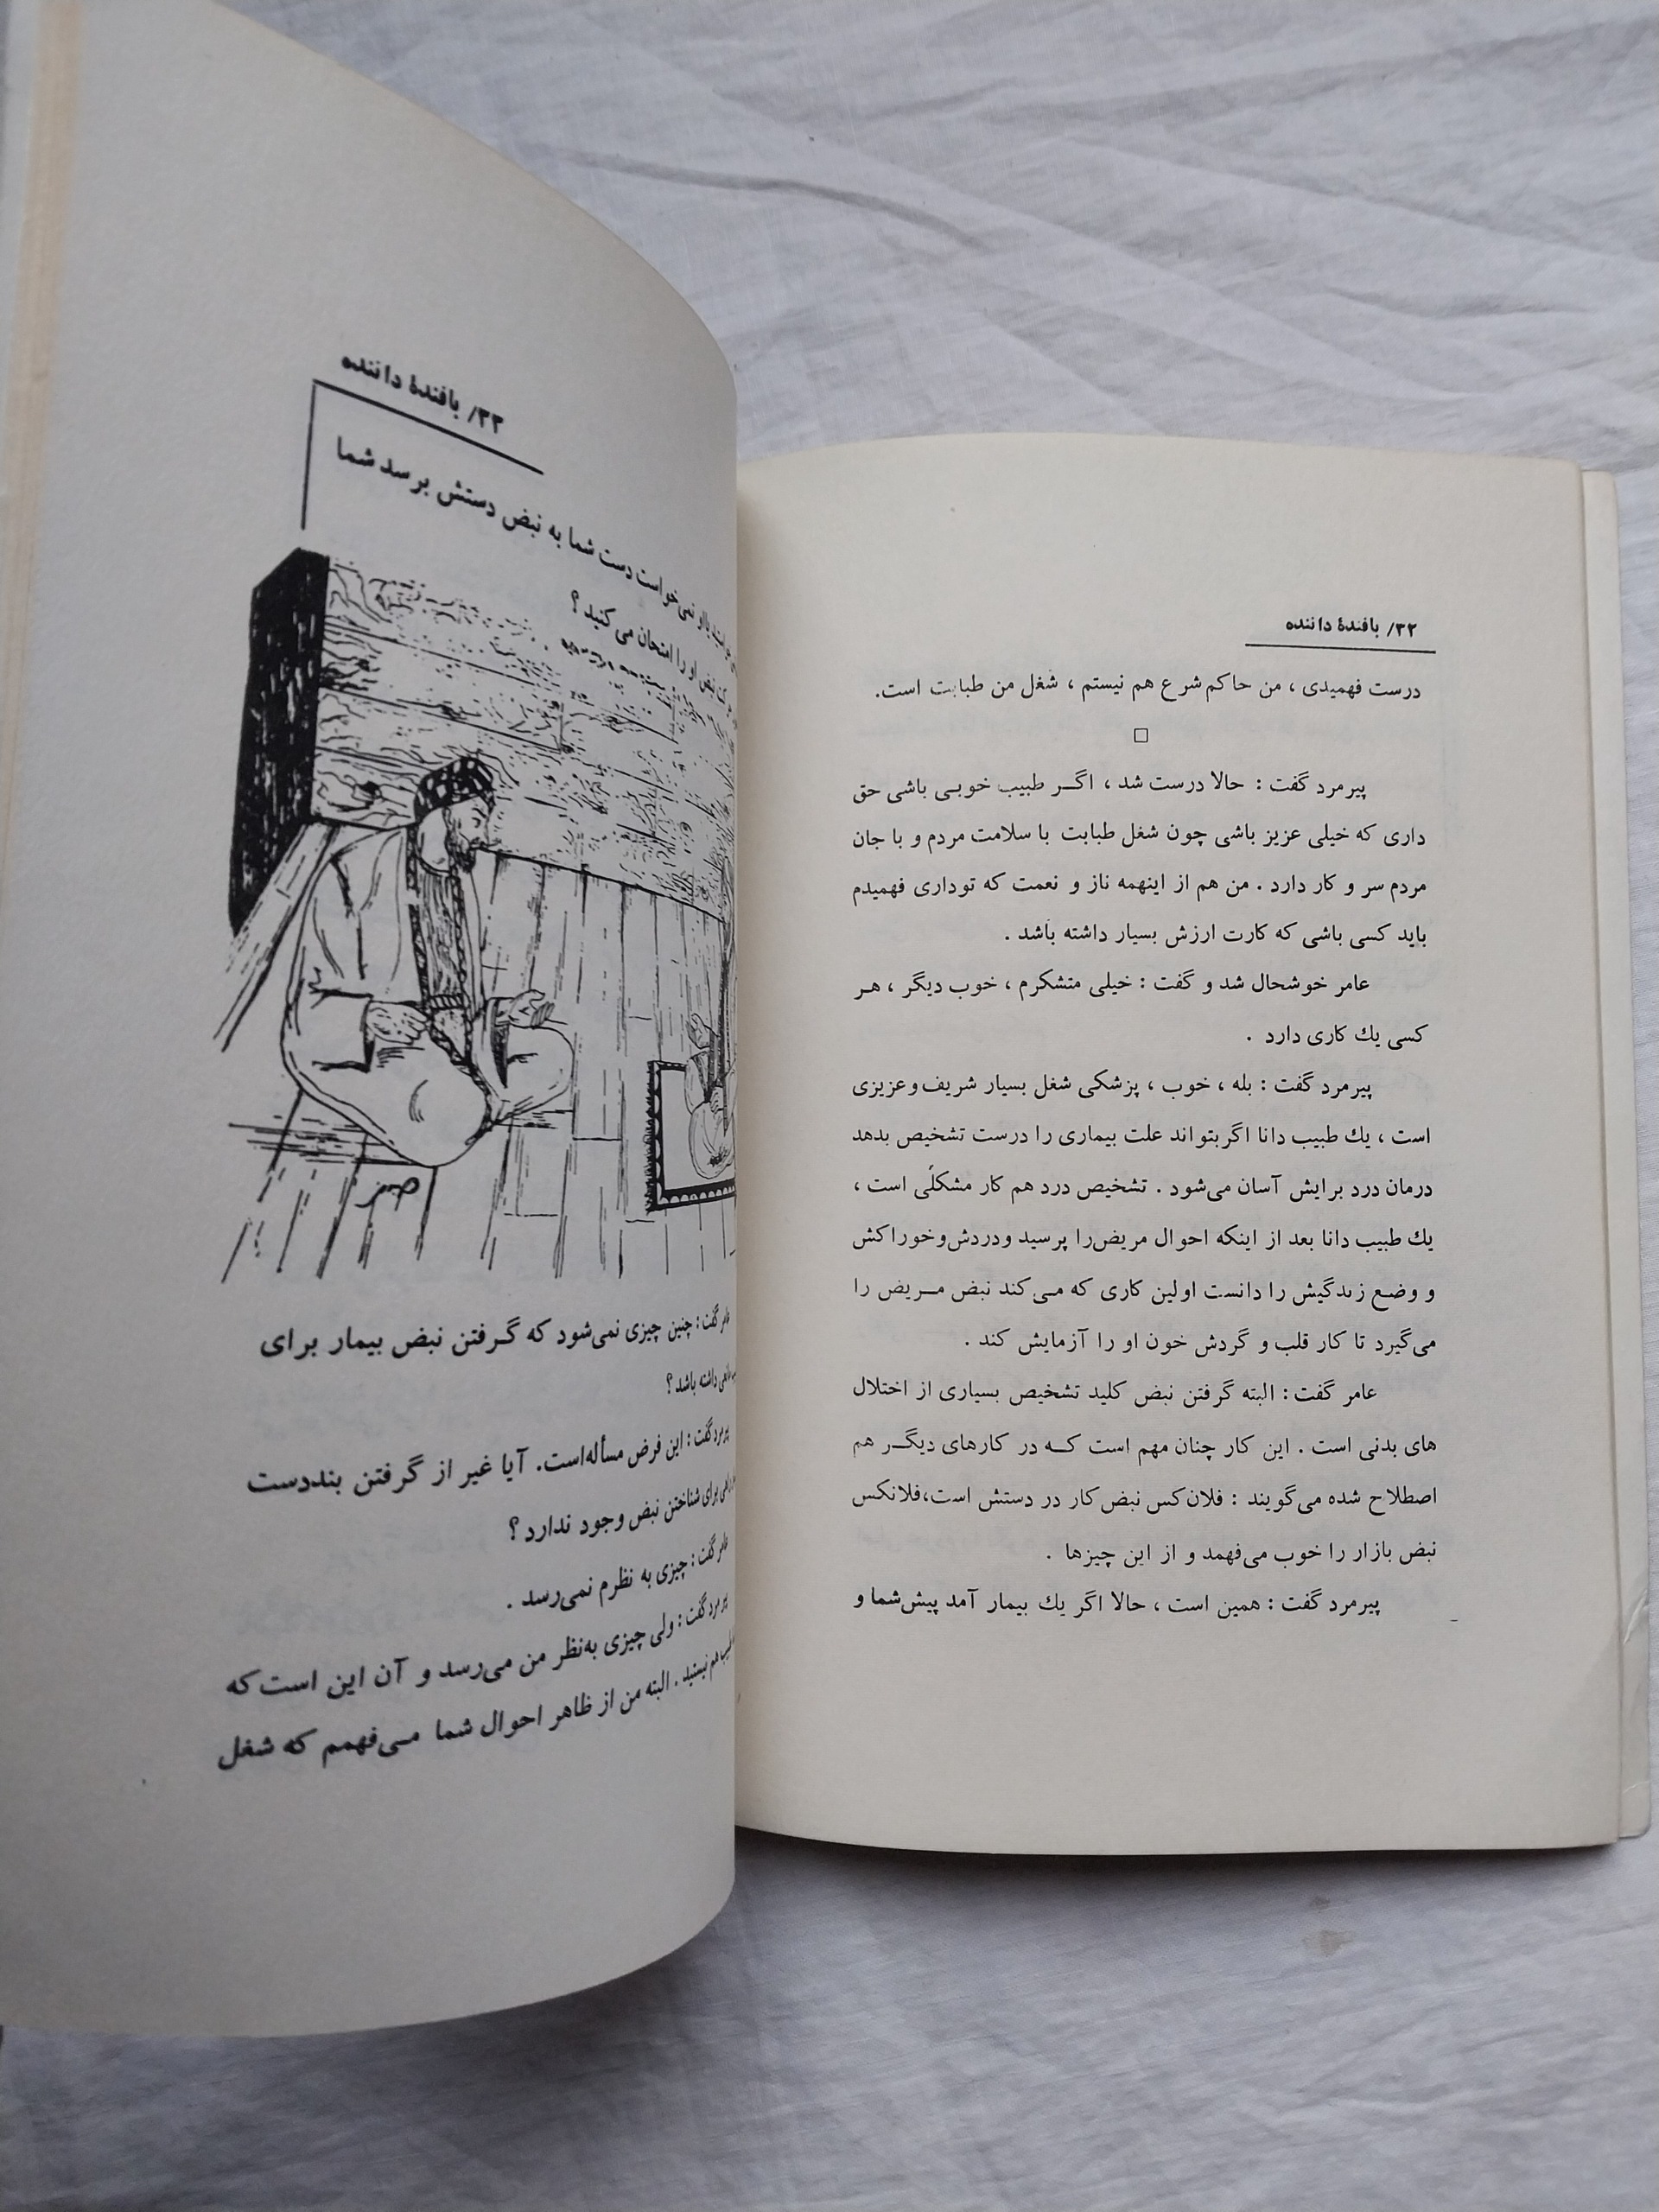 ۳۲/ بافندهٔ داننده
درست فهمیدی ، من حاکم شرع هم نیستم ، شغل من طبابت است.
پیرمرد گفت : حالا درست شد ، اگـر طبیب خوبـی باشی حق
داری که خیلی عزیز باشی چون شغل طبابت با سلامت مردم و با جان
مردم سر و کار دارد . من هم از اینهمه ناز و نعمت که توداری فهمیدم
باید کسی باشی که کارت ارزش بسیار داشته باشد .
عامر خوشحال شد و گفت : خیلی متشکرم ، خوب دیگر ، هـر
کسی یك کاری دارد .
پیرمرد گفت : بله ، خوب ، پزشکی شغل بسیار شریف‌وعزیزی
است ، یك طبیب دانا اگربتواند علت بیماری را درست تشخیص بدهد
درمان درد برایش آسان می‌شود . تشخیص درد هم کار مشکلی است ،
یك طبیب دانا بعد از اینکه احوال مریض‌را پرسید ودردش‌وخوراکش
و وضع زندگیش را دانست اولین کاری که مـی‌کند نبض مـریض را
می‌گیرد تا کار قلب و گردش خون او را آزمایش کند .
عامر گفت : البته گرفتن نبض کلید تشخیص بسیاری از اختلال
های بدنی است . این کار چنان مهم است کـه در کارهای دیگـر هم
اصطلاح شده می‌گویند : فلان‌کس نبض‌کار در دستش است،فلانکس
نبض بازار را خوب می‌فهمد و از این چیزها .
پیرمرد گفت : همین است ، حالا اگر یك بیمار آمد پیش‌شما و
۳۳/ بافندهٔ داننده
نمی‌خواست دست شما به نبض دستش برسد شما
نبض او را امتحان می‌کنید ؟
صبز
عامر گفت : چنین چیزی نمی‌شود که گـرفتن نبض بیمار برای
داشته باشد ؟
پیرمرد گفت : این فرض مسأله‌است. آیا غیر از گرفتن بنددست
برای شناختن نبض وجود ندارد ؟
عامر گفت : چیزی به نظرم نمی‌رسد .
پیرمرد گفت : ولی چیزی به‌نظر من می‌رسد و آن این است‌که
هم نیستید . البته من از ظاهر احوال شما مـی‌فهمم که شغل